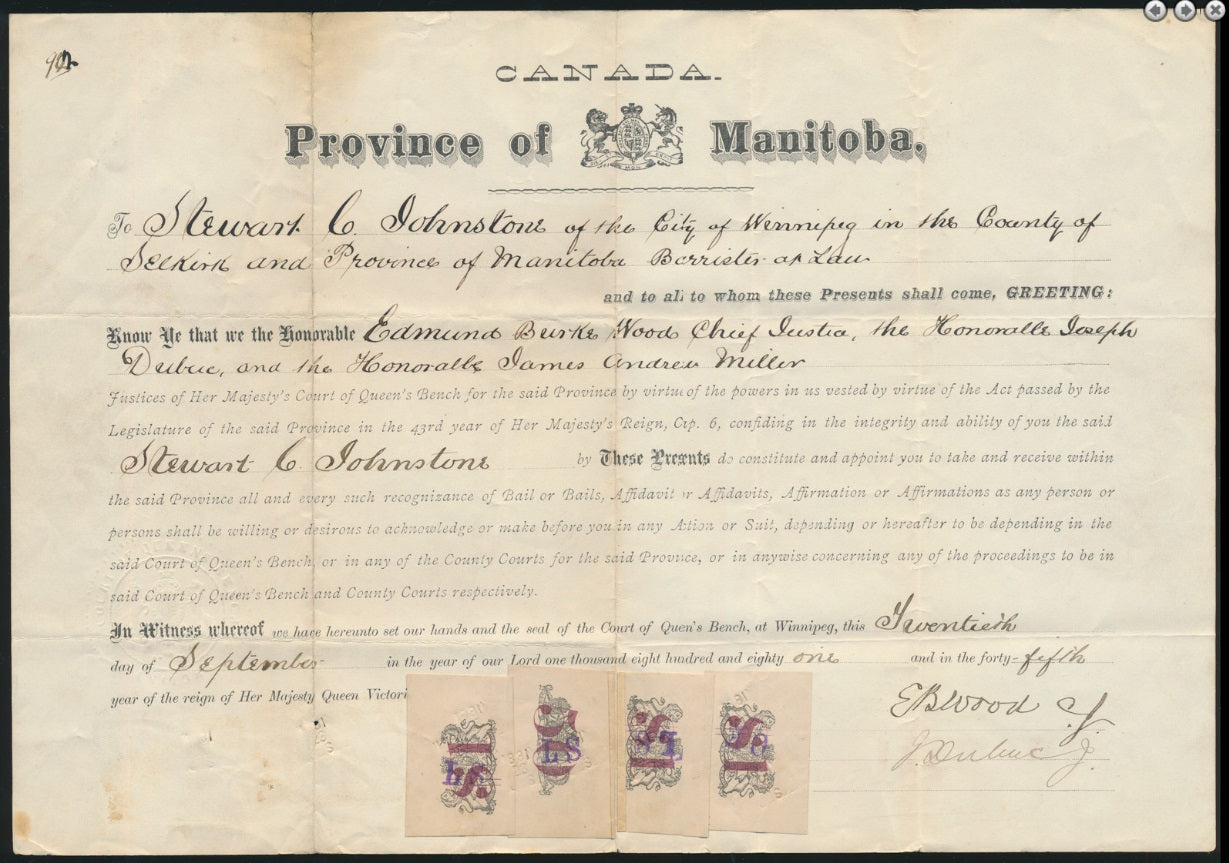 CANADA.
Province of Manitoba.
To Stewart C. Johnstone of the City of Winnipeg in the County of
Selkirk and Province of Manitoba Barrister at Law
and to all to whom these Presents shall come, GREETING:
Know Ye that we the Honorable Edmund Burke Wood Chief Justice, the Honorable Joseph
Dubuc, and the Honorable James Andrew Miller
Justices of Her Majesty's Court of Queen's Bench for the said Province by virtue of the powers in us vested by virtue of the Act passed by the
Legislature of the said Province in the 43rd year of Her Majesty's Reign, Cap. 6, confiding in the integrity and ability of you the said
Stewart C. Johnstone by These Presents do constitute and appoint you to take and receive within
the said Province all and every such recognizance of Bail or Bails, Affidavit or Affidavits, Affirmation or Affirmations as any person or
persons shall be willing or desirous to acknowledge or make before you in any Action or Suit, depending or hereafter to be depending in the
said Court of Queen's Bench, or in any of the County Courts for the said Province, or in anywise concerning any of the proceedings to be in
said Court of Queen's Bench and County Courts respectively.
In Witness whereof we have hereunto set our hands and the seal of the Court of Queen's Bench, at Winnipeg, this Twentieth
day of September in the year of our Lord one thousand eight hundred and eighty one and in the forty-fifth
year of the reign of Her Majesty Queen Victori
E B Wood C.J.
J. Dubuc J.
LS